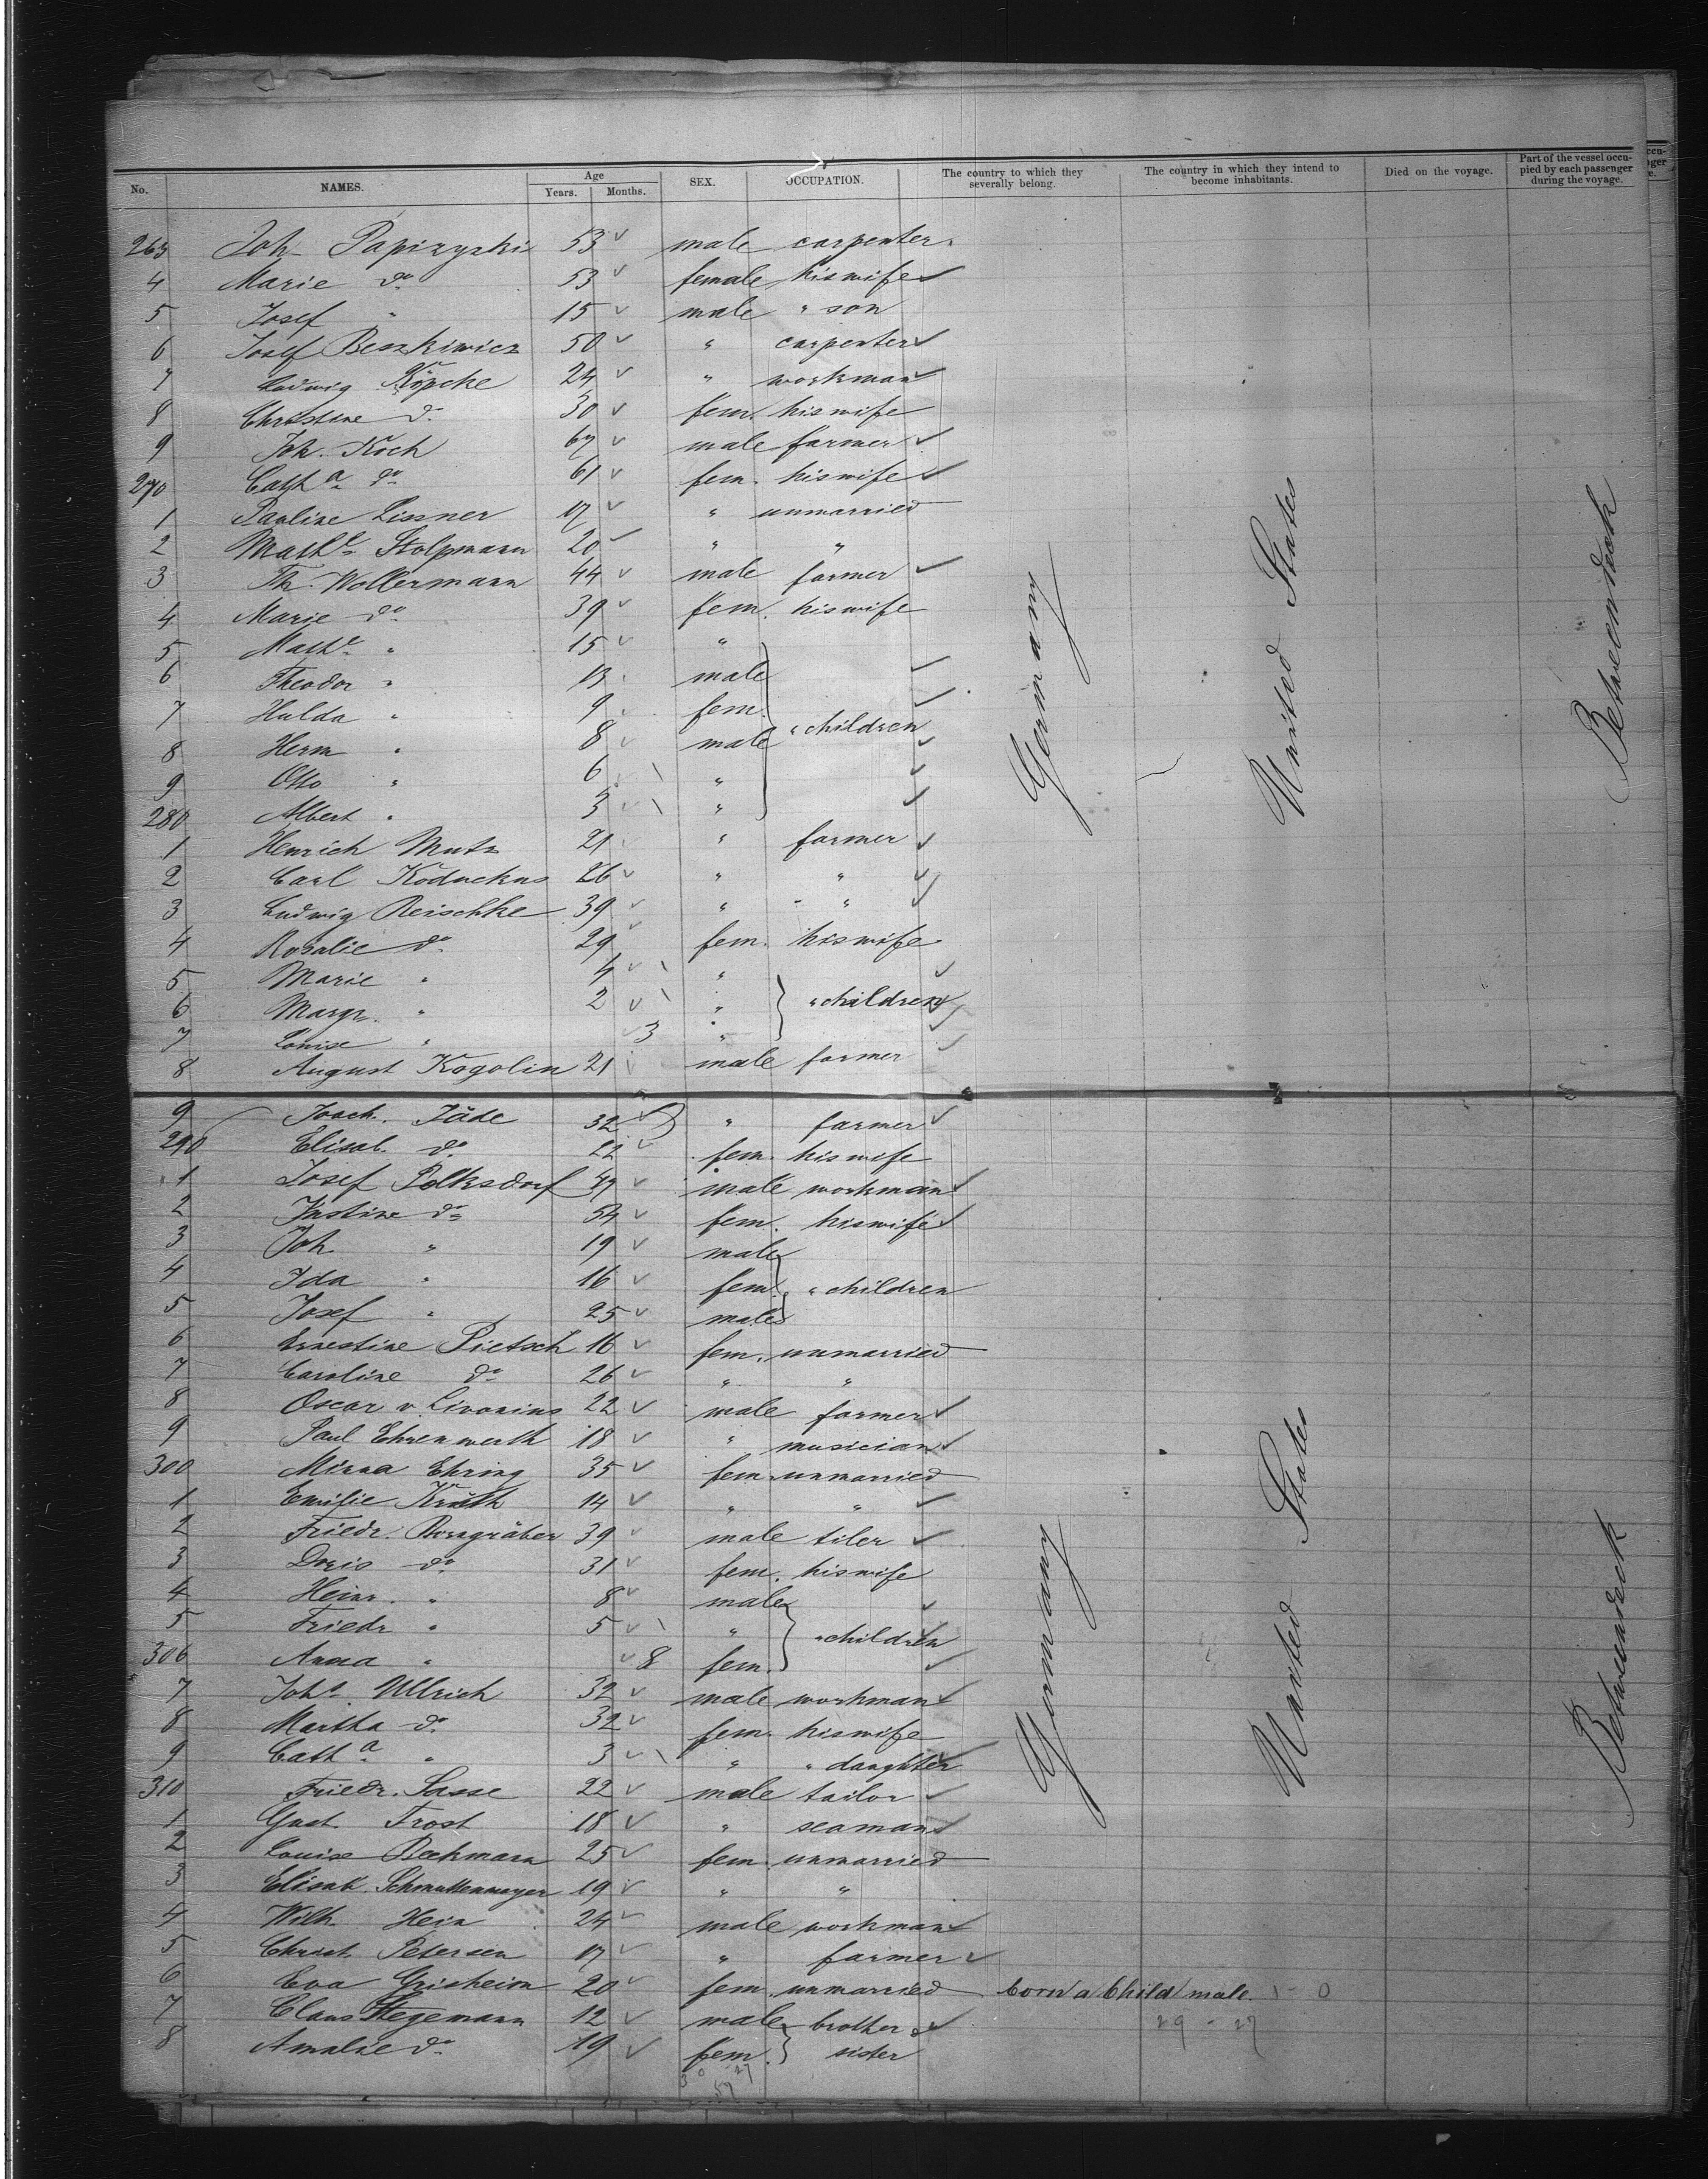 No. NAMES. Age Years. Months. SEX. OCCUPATION. The country to which they severally belong. The country in which they intend to become inhabitants. Died on the voyage. Part of the vessel occupied by each passenger during the voyage.
263 Joh. Papizyski 53 male carpenter
4 Marie do 53 female his wife
5 Josef " 15 male " son
6 Josef Beszkiwicz 50 " carpenter
7 Ludwig Köpcke 24 " workman
8 Christine do 30 fem. his wife
9 Joh. Koch 67 male farmer
270 Catha do 61 fem. his wife
1 Pauline Lissner 17 " unmarried
2 Mathe Stolpmann 20 " "
3 Th. Wollermann 44 male farmer
4 Marie do 39 fem. his wife
5 Mathe " 15 "
6 Theodor " 13 male
7 Hulda " 9 fem. " children
8 Herm " 8 male
9 Otto " 6 "
280 Albert " 3 "
1 Henrich Mutz 21 " farmer
2 Carl Köduckus 26 " "
3 Ludwig Reischke 39 " "
4 Rosalie do 29 fem. his wife
5 Marie " 4 "
6 Margr. " 2 " " children
7 Louise " 3 "
8 August Kogolin 21 male farmer
Germany United States Betweendeck
9 Joach. Jäde 32 " farmer
290 Elisab. do 22 fem. his wife
1 Josef Polksdorf 47 male workman
2 Justine do 54 fem. his wife
3 Joh " 19 male
4 Ida " 16 fem. " children
5 Josef " 25 male
6 Ernestine Pietsch 16 fem. unmarried
7 Caroline do 26 " "
8 Oscar v. Livonius 22 male farmer
9 Paul Ehrenwerth 18 " musician
300 Minna Ehring 35 fem unmarried
1 Emilie Kräth 14 " "
2 Friedr. Borngräber 39 male tiler
3 Doris do 31 fem. his wife
4 Heinr. " 8 male
5 Friedr " 5 " " children
306 Anna " 8 fem.
7 Johs. Ullrich 32 male workman
8 Martha do 32 fem. his wife
9 Catha " 3 " " daughter
310 Friedr. Sasse 22 male tailor
1 Gust. Frost 18 " seaman
2 Louise Beckmann 25 fem. unmarried
3 Elisab. Schmuttenmayer 19 " "
4 Wilh. Hein 24 male workman
5 Christ. Petersen 17 " farmer
6 Eva Grisheim 20 fem. unmarried born a Child male 1 - 0
7 Claus Stegemann 12 male brother & 29 - 27
8 Amalie do 19 fem. sister
Germany United States Betweendeck
30 27
57